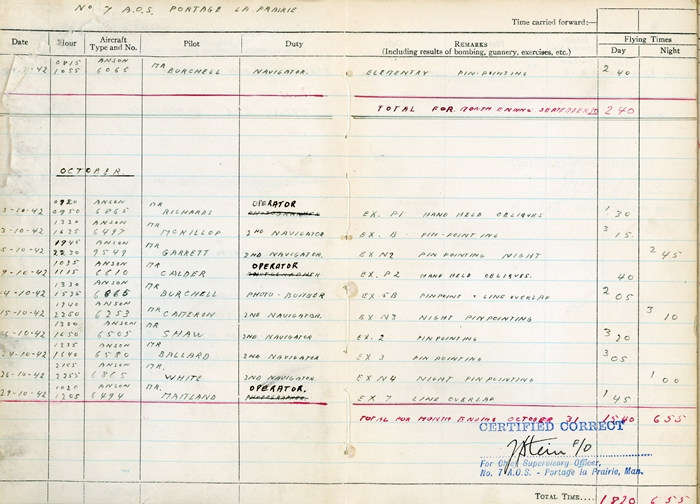 No 7 A.O.S. PORTAGE LA PRAIRIE
Time carried forward:—
Date Hour Aircraft Type and No. Pilot Duty REMARKS (Including results of bombing, gunnery, exercises, etc.) Flying Times Day Night
42 0815 1055 ANSON 6065 MR BURCHELL NAVIGATOR. ELEMENTARY PIN-POINTING 2 40
TOTAL FOR MONTH ENDING SEPTEMBER 2 40
OCTOBER.
-10-42 0950 ANSON 6865 MR RICHARDS OPERATOR EX. P1 HAND HELD OBLIQUES 1 30
-10-42 1320 1635 ANSON 6497 MR MCKILLOP 2ND NAVIGATOR EX. B PIN-POINTING 3 15
-10-42 1945 2230 ANSON 9549 MR GARRETT 2ND NAVIGATOR. EX N2 PIN POINTING NIGHT 2 45
9-10-42 1035 1115 ANSON 6610 MR CALDER OPERATOR EX. P2 HAND HELD OBLIQUES. 40
14-10-42 1330 1535 ANSON 6865 MR BURCHELL PHOTO-BOMBER EX 5B PINPOINT & LINE OVERLAP 2 05
15-10-42 1940 2250 ANSON 6253 MR CAMERON 2ND NAVIGATOR. EX N3 NIGHT PINPOINTING 3 10
-10-42 1330 1650 ANSON 6505 MR SHAW 2ND NAVIGATOR EX. 2 PINPOINTING 3 20
24-10-42 1335 1640 ANSON 6580 MR BALLARD 2ND NAVIGATOR EX 3 PIN POINTING 3 05
26-10-42 2155 2255 ANSON 6865 MR. WHITE 2ND NAVIGATOR EX N4 NIGHT PIN POINTING 1 00
29-10-42 1020 1205 ANSON 6494 MR. MAITLAND OPERATOR. EX 7 LINE OVERLAP 1 45
TOTAL FOR MONTH ENDING OCTOBER 31 15 40 6 55
CERTIFIED CORRECT
JStein F/O
For Chief Supervisory Officer,
No. 7 A.O.S. - Portage la Prairie, Man.
TOTAL TIME.... 18 20 6 55